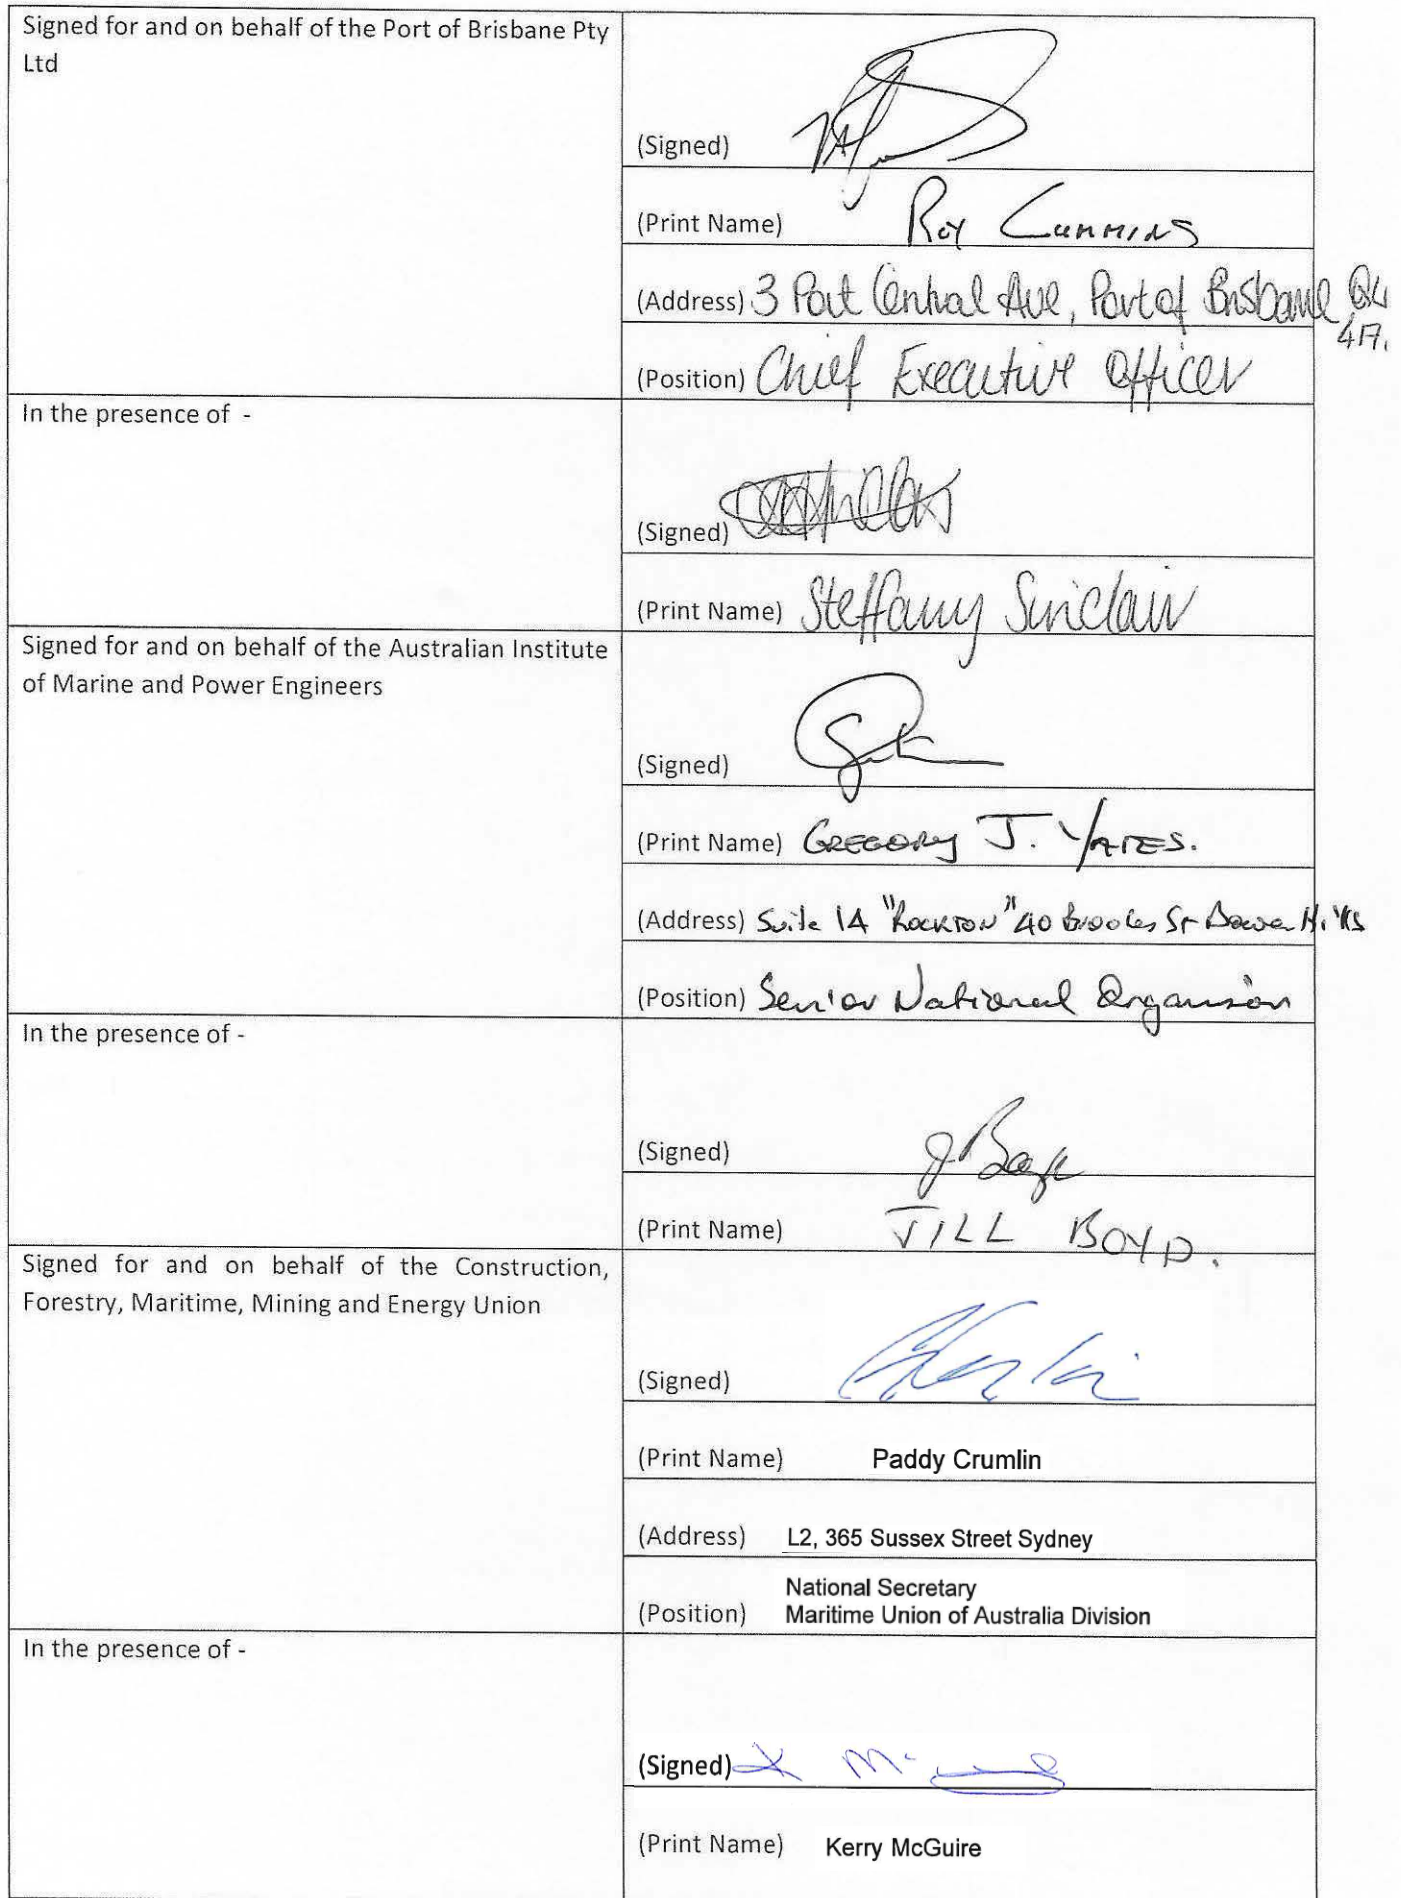 Signed for and on behalf of the Port of Brisbane Pty
Ltd
(Signed)
(Print Name) Roy Cummins
(Address) 3 Port Central Ave, Port of Brisbane
(Position) Chief Executive Officer
In the presence of -
(Signed)
(Print Name) Steffany Sinclair
Signed for and on behalf of the Australian Institute
of Marine and Power Engineers
(Signed)
(Print Name) GREGORY J. YATES.
(Address) Suite 14 "ROCKTON" 40 Brookes St Bowen Hills
(Position) Senior National Organiser
In the presence of -
(Signed) J Boyd
(Print Name) JILL BOYD.
Signed for and on behalf of the Construction,
Forestry, Maritime, Mining and Energy Union
(Signed)
(Print Name) Paddy Crumlin
(Address) L2, 365 Sussex Street Sydney
National Secretary
(Position) Maritime Union of Australia Division
In the presence of -
(Signed)
(Print Name) Kerry McGuire